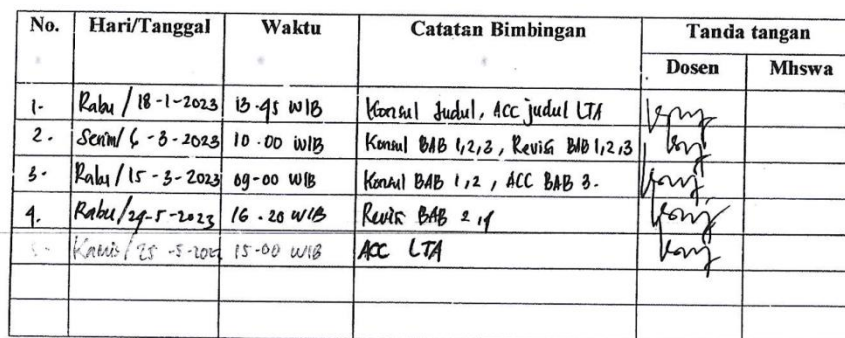 No. Hari/Tanggal Waktu Catatan Bimbingan Tanda tangan
Dosen Mhswa
1- Rabu / 18-1-2023 13.45 WIB Konsul Judul, ACC judul LTA
2. Senin/ 6-3-2023 10.00 WIB Konsul BAB 1,2,3, Revisi BAB 1,2,3
3. Rabu/15-3-2023 09-00 WIB Konsul BAB 1,2, ACC BAB 3.
4. Rabu/24-5-2023 16.20 WIB Revisi BAB 2,4
5. Kamis/ 25-5-2023 15-00 WIB ACC LTA